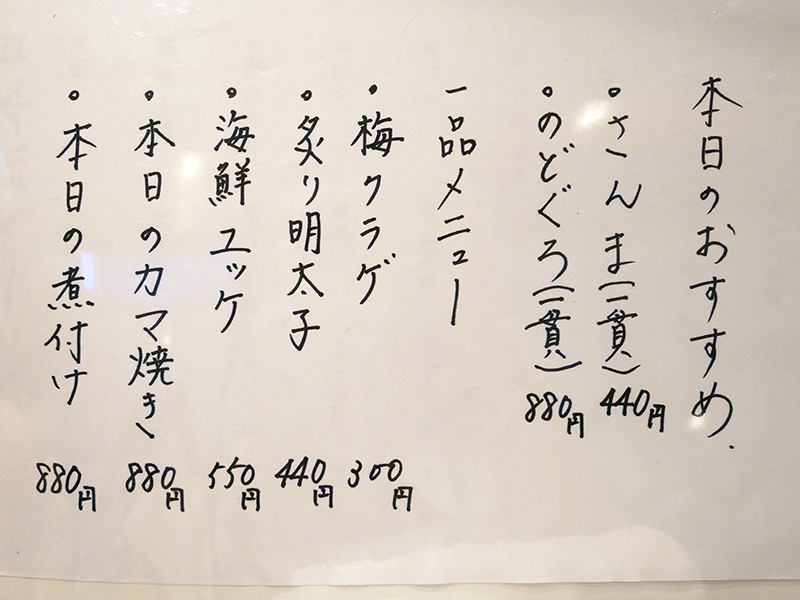 本日のおすすめ.
・さんま(一貫) 440円
・のどぐろ(一貫) 880円
一品メニュー
・梅クラゲ 300円
・炙り明太子 440円
・海鮮ユッケ 550円
・本日のカマ焼き 880円
・本日の煮付け 880円